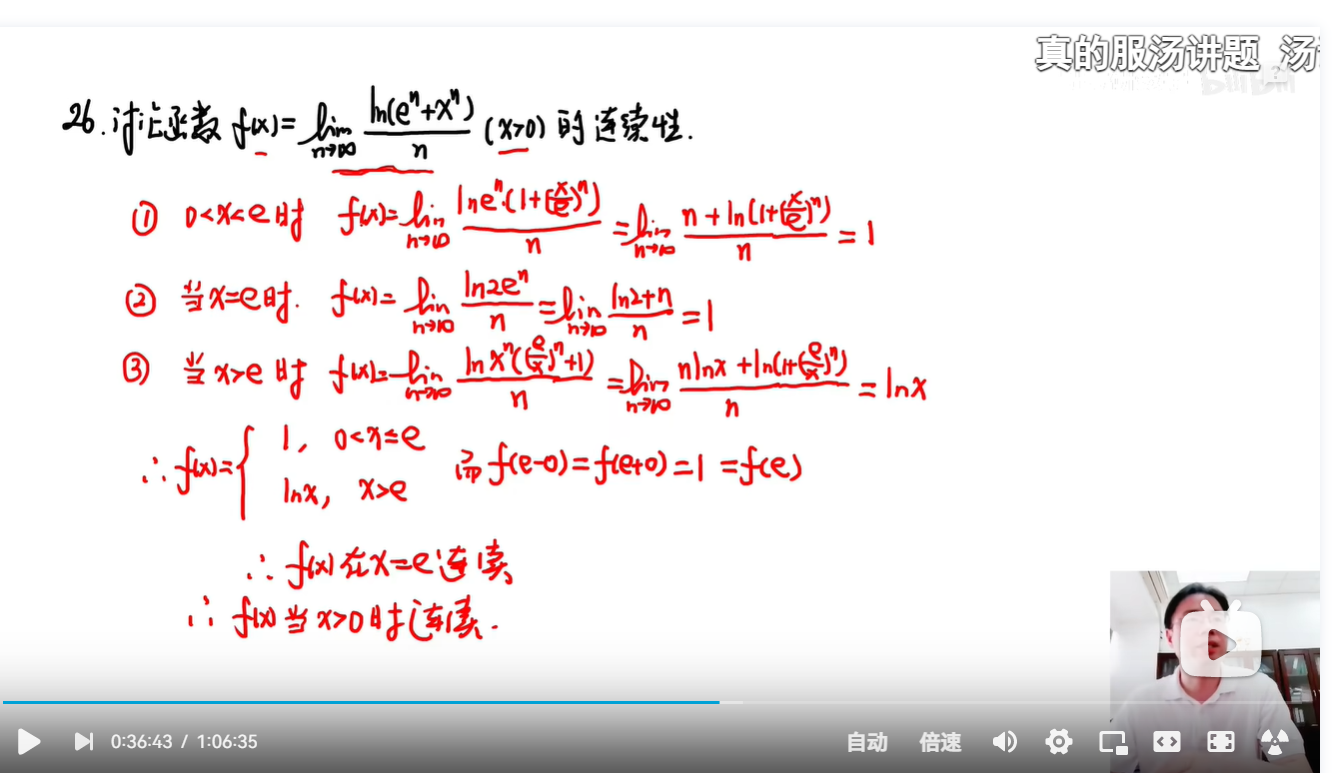 真的服汤讲题 汤
26.讨论函数 f(x)=lim n→∞ ln(eⁿ+xⁿ)/n (x>0) 的连续性.
① 0<x<e时 f(x)=lim n→∞ lneⁿ·(1+(x/e)ⁿ)/n =lim n→∞ n+ln(1+(x/e)ⁿ)/n =1
② 当x=e时. f(x)=lim n→∞ ln2eⁿ/n =lim n→∞ ln2+n/n =1
③ 当x>e时 f(x)=lim n→∞ lnxⁿ((e/x)ⁿ+1)/n =lim n→∞ nlnx+ln(1+(e/x)ⁿ)/n =lnx
∴ f(x)={ 1, 0<x≤e
lnx, x>e
而 f(e-0)=f(e+0)=1=f(e)
∴ f(x)在x=e连续
∴ f(x)当x>0时连续.
0:36:43 / 1:06:35
自动 倍速